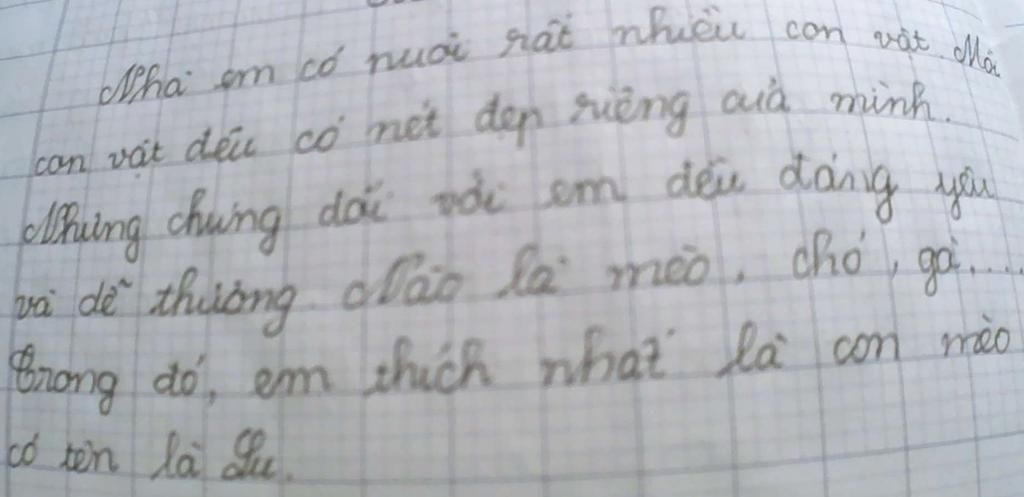 Nhà em có nuôi rất nhiều con vật. Mỗi
con vật đều có nét đẹp riêng của mình.
Nhưng chúng đối với em đều đáng yêu
và dễ thương. Nào là mèo, chó, gà,...
Trong đó, em thích nhất là con mèo
có tên là Su.